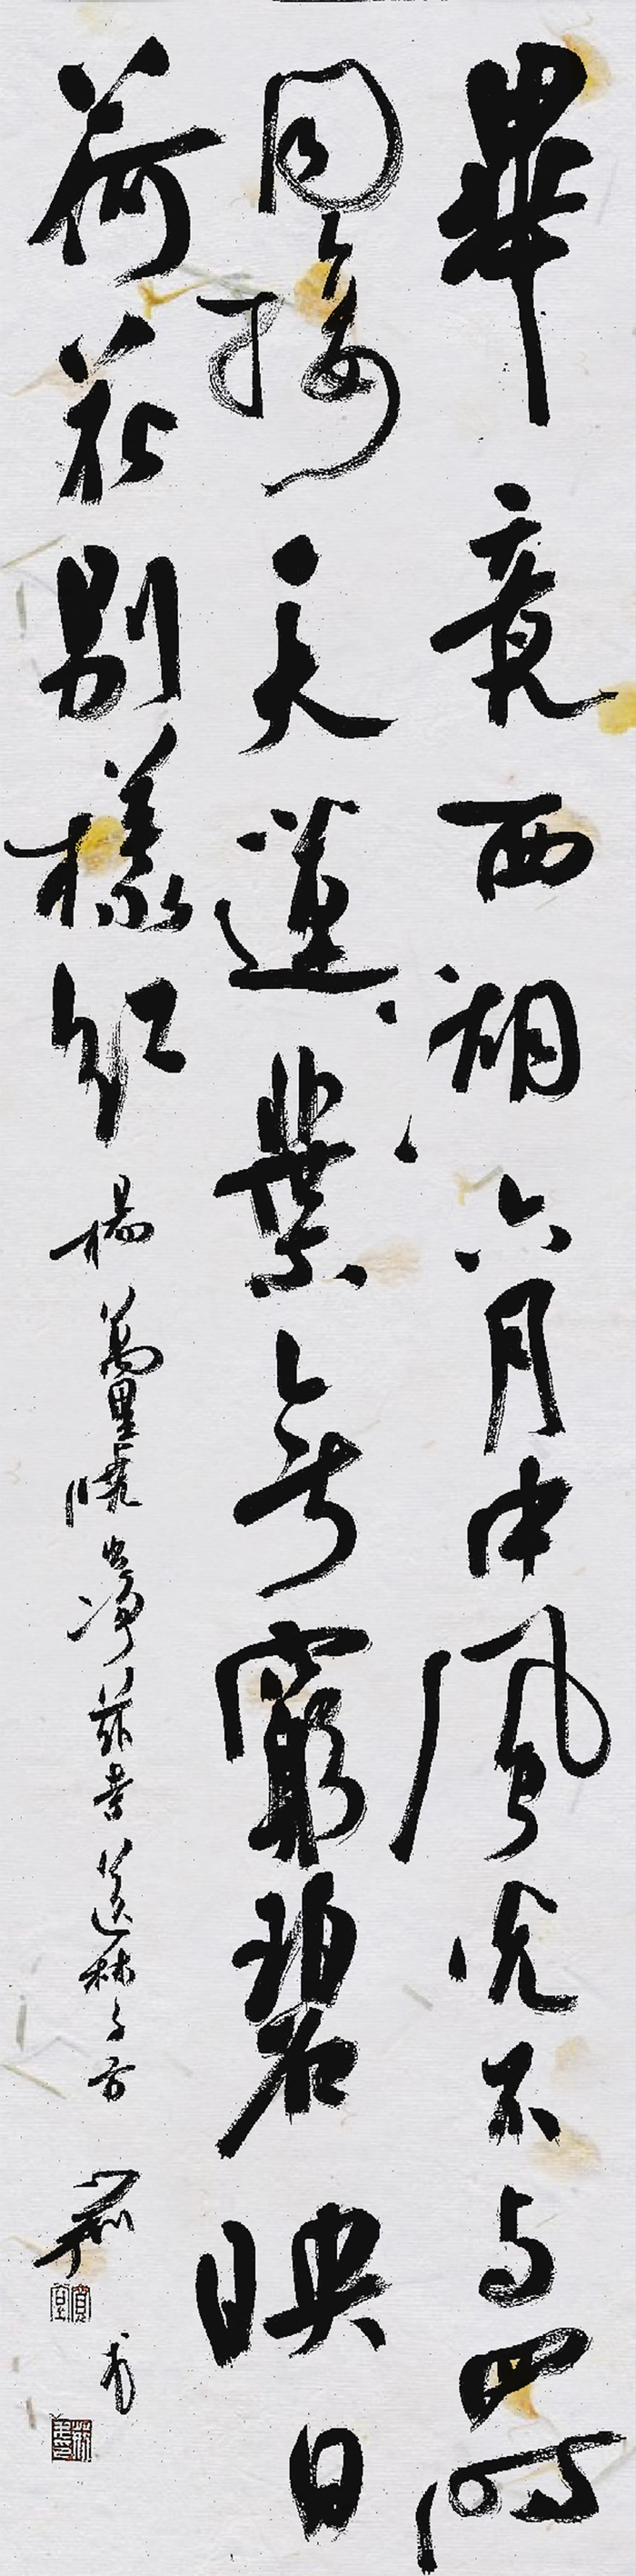 畢竟西湖六月中風光不与四時
同接天蓮葉無窮碧映日
荷花別樣紅 楊萬里曉出淨慈寺送林子方